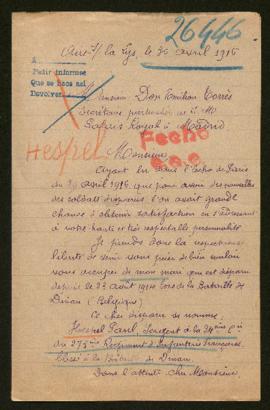 26446
Aire s/ la Lys, le 30 avril 1916
A
Pedir informes
Que se haga así
Devolver
Monsieur Don Emilion Torrès
Secrétaire particulier de S. M.
Palais Royal à Madrid
Fecho
Hespel
Monsieur
Ayant lu dans l'Echo de Paris
du 29 avril 1916, que pour avoir des nouvelles
des soldats disparus l'on avait grande
chance d'obtenir satisfaction en s'adressant
à votre haute et très respectable personnalité
Je prends donc la respectueuse
liberté de venir vous prier de bien vouloir
vous occuper de mon mari qui est disparu
depuis le 23 août 1914 lors de la Bataille de
Dinan (Belgique)
Ce cher disparu se nomme
Hespel Paul, Sergent à la 24ème Cie
du 273ème Régiment d'Infanterie Française
à la de Dinan.
Dans l'attente cher Monsieur